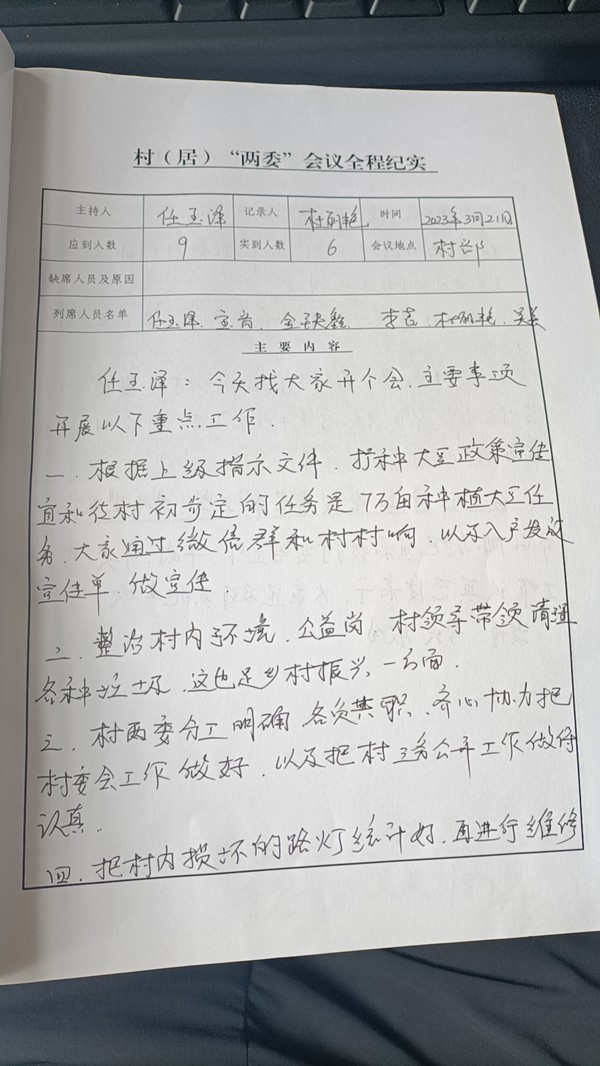 村（居）“两委”会议全程纪实
主持人 任玉泽 记录人 时间 2023年3月21日
应到人数 9 实到人数 6 会议地点 村部
缺席人员及原因
列席人员名单 任玉泽.
主要内容
任玉泽：今天找大家开个会.主要事项
开展以下重点工作.
一.根据上级指示文件.扩种大豆政策宣传
宜和位村初步定的任务是7万亩种植大豆任
务.大家通过微信群和村村响.以及入户发放
宣传单.做宣传.
二.整治村内环境.公益岗.村领导带领清理
各种垃圾.这也是乡村振兴.一方面.
三.村两委分工明确.各负其职.齐心协力把
村委会工作做好.以及把村三务公开工作做好
认真.
四.把村内损坏的路灯统计好.再进行维修